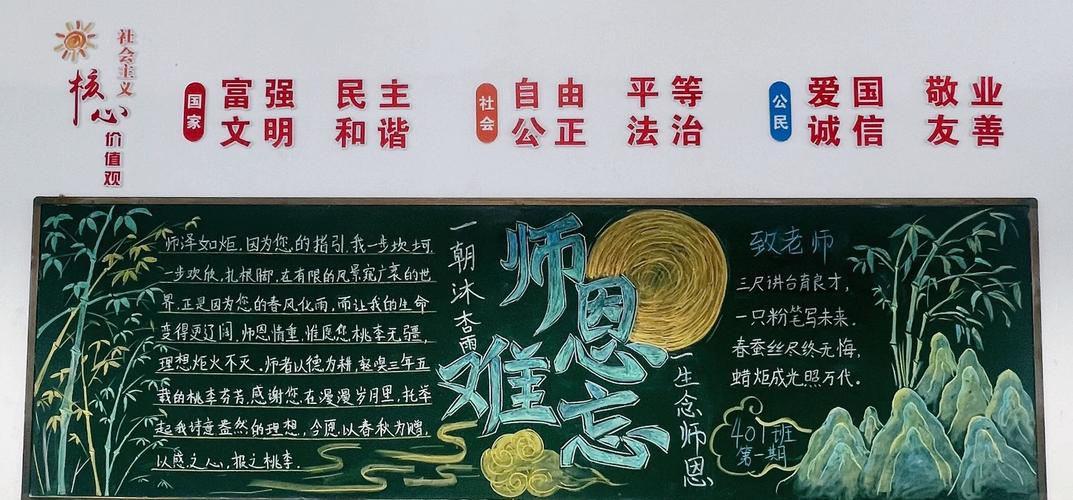 社会主义
核心
价值观
国家
富强 民主
文明 和谐
社会
自由 平等
公正 法治
公民
爱国 敬业
诚信 友善
师泽如炬,因为您的指引,我一步坎坷
一步欢欣,扎根脚,在有限的风景窥广袤的世
界,正是因为您的春风化雨,而让我的生命
变得更辽阔,师恩情重,惟愿您桃李无疆,
理想炬火不灭.师者以德为耕,三年五
我的桃李芬芳,感谢您在漫漫岁月里,托举
起我诗意盎然的理想,今愿以春秋为赠,
以感之心,报之桃李.
一朝沐杏雨
师恩难忘
一生念师恩
致老师
三尺讲台育良才,
一只粉笔写未来.
春蚕丝尽终无悔,
蜡炬成光照万代.
401班
第一期